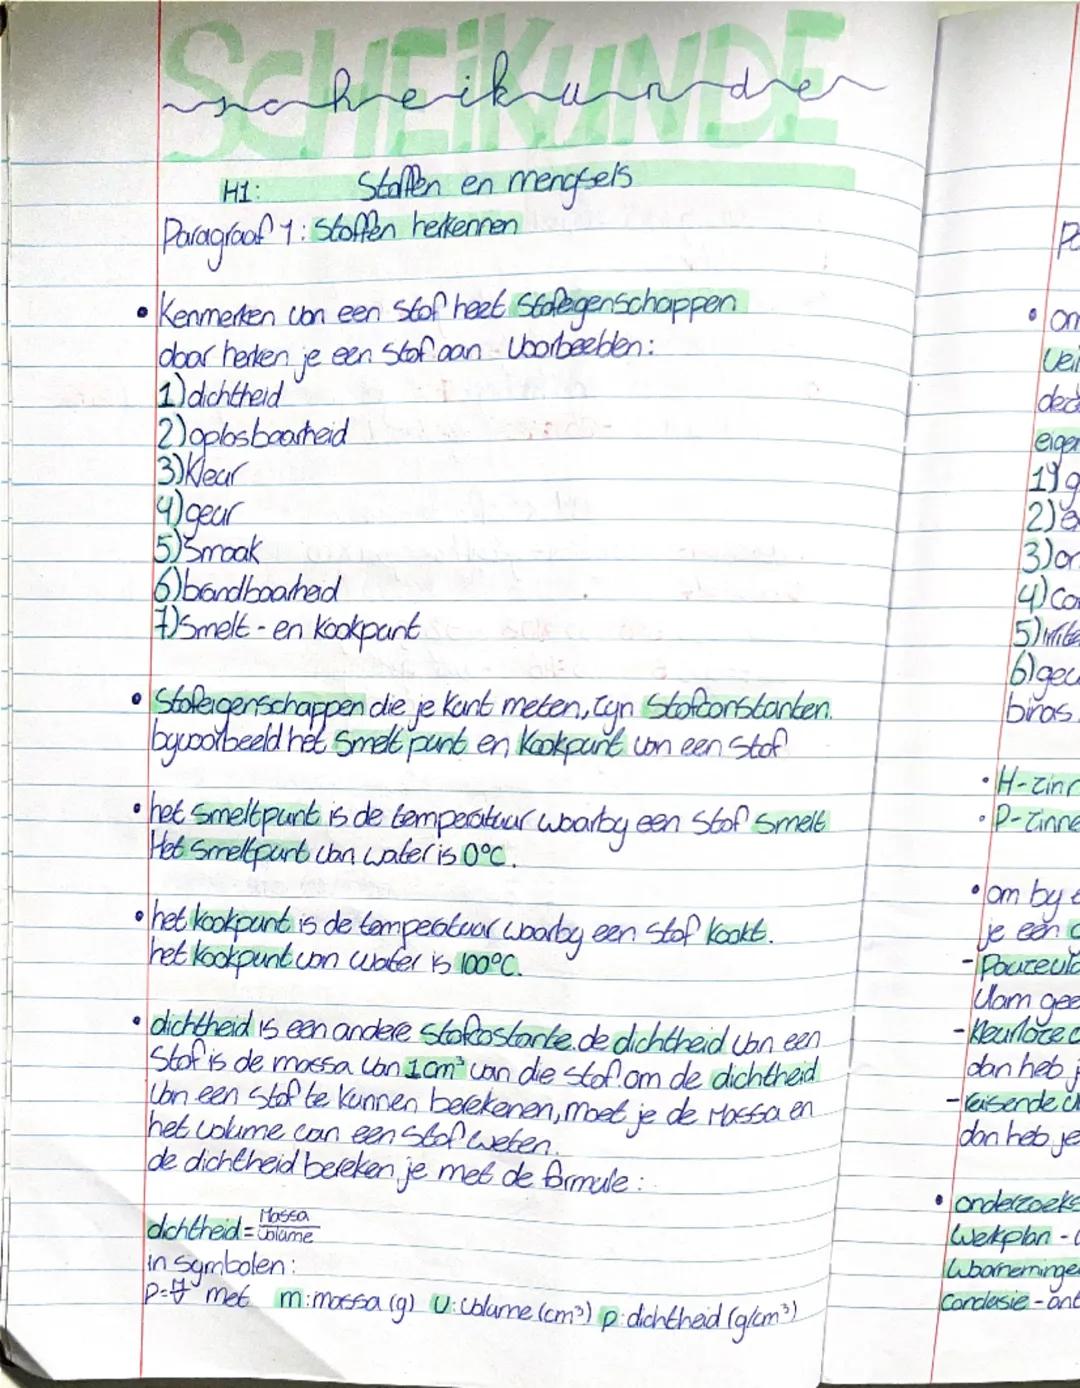 SCHEIKUNDE
scheikunde
H1: Stoffen en mengsels
Paragraaf 1: Stoffen herkennen
• Kenmerken van een stof heet stofeigenschappen
daar herken je een stof aan. Voorbeelden:
1) dichtheid
2) oplosbaarheid
3) kleur
4) geur
5) Smaak
6) brandbaarheid
7) Smelt- en kookpunt
• Stofeigenschappen die je kunt meten, zyn Stofconstanten.
byvoorbeeld het smelt punt en kookpunt van een stof
• het smeltpunt is de temperatuur waarby een stof smelt
Het smeltpunt van water is 0°C.
• het kookpunt is de temperatuur waarby een stof kookt.
het kookpunt van water is 100°C.
• dichtheid is een andere stofcostante. de dichtheid van een
Stof is de massa van 1 cm³ van die stof. om de dichtheid
van een stof te kunnen berekenen, moet je de massa en
het volume van een stof weten.
de dichtheid bereken je met de formule:
dichtheid = Massa
volume
in symbolen:
met m: massa (g) v: volume (cm³) p: dichtheid (g/cm³)
• om
eigen
1) g
2)
3) or
4) Co
5)
6) geu
biras.
• H-zinn
• P-zinne
• om by
je een
-
vlam gee
- kleurloze
dan heb j
-
dan heb je
• onderzoeks
Werkplan -
Waarneminge
Conclusie - ant